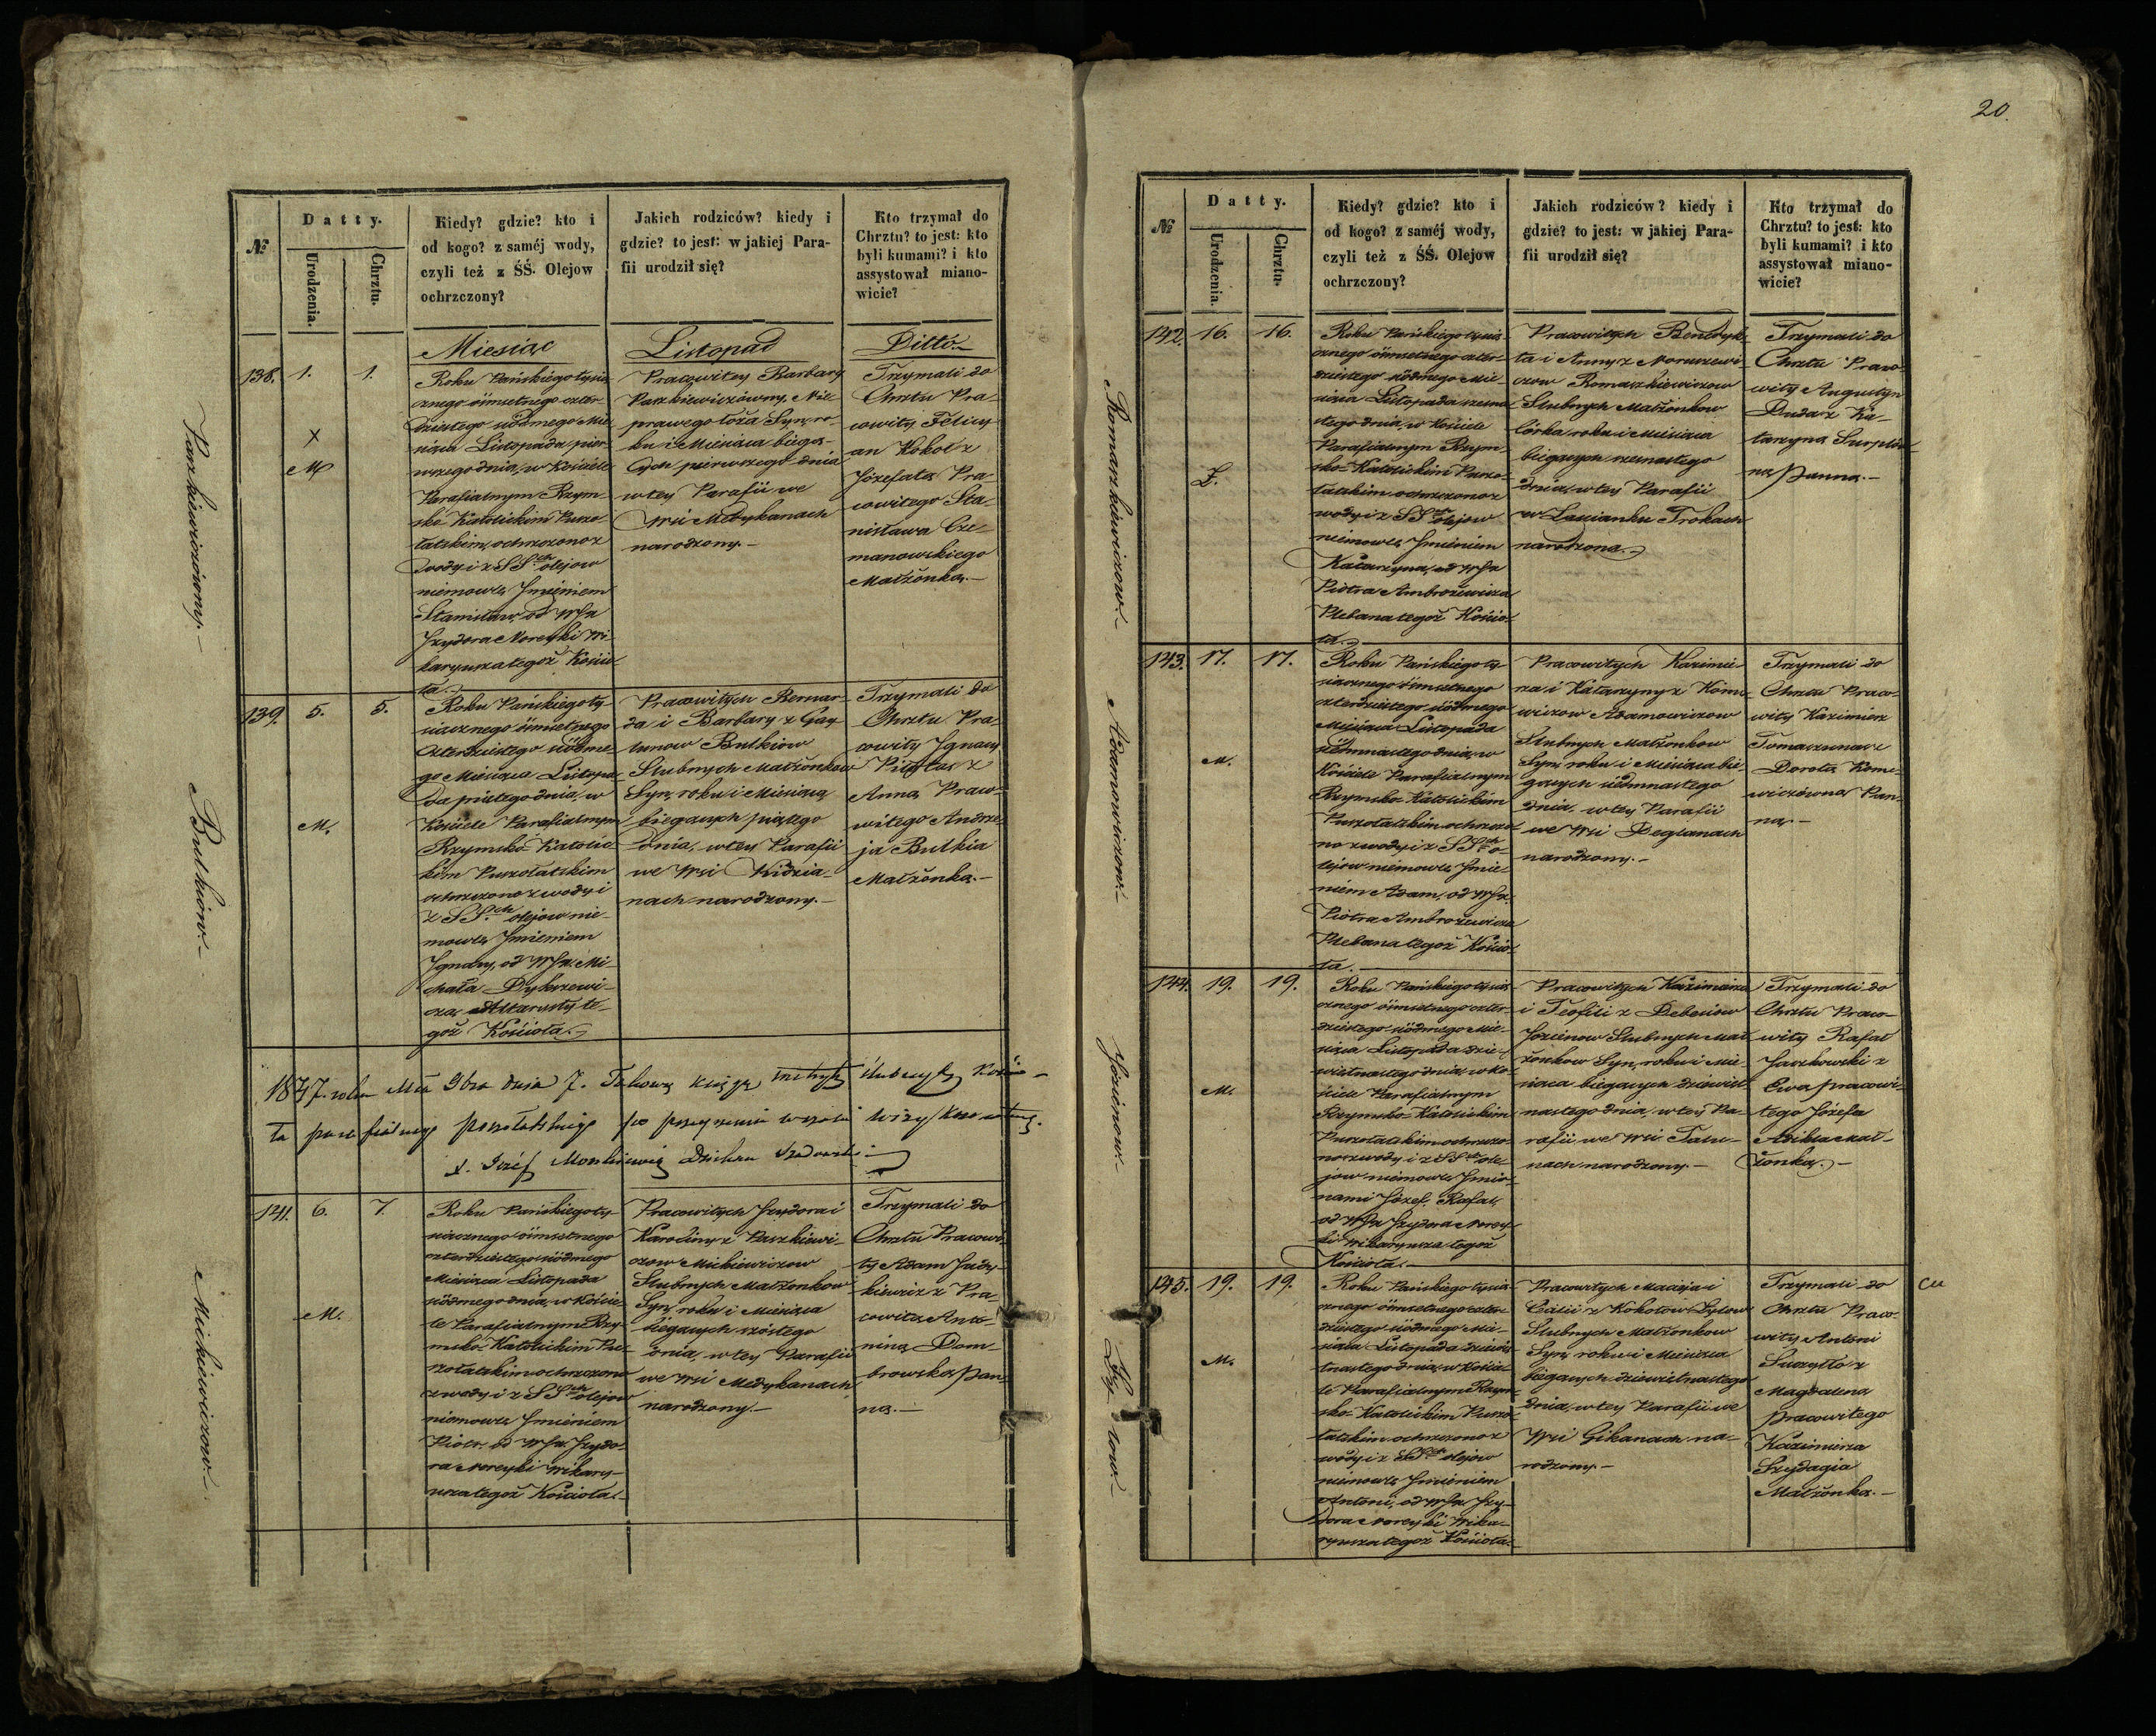 №
Datty.
Urodzenia.
Chrztu.
Kiedy? gdzie? kto i
od kogo? z saméj wody,
czyli też z ŚŚ. Olejow
ochrzczony?
Jakich rodziców? kiedy i
gdzie? to jest: w jakiej Para-
fii urodził się?
Kto trzymał do
Chrztu? to jest: kto
byli kumami? i kto
assystował miano-
wicie?
Miesiąc
Listopad
Ditto
Paszkiewiczówny.-
138.
1.
1.
X
M
Roku Pańskiego tysią-
cznego ósmsetnego czter-
dziestego siódmego Mie-
siąca Listopada pier-
wszego dnia, w Kościele
Parafialnym Rzym-
sko-Katolickim Puszo-
łatskim, ochrzczono z
wody i z SS.ch olejow
niemowlę Imieniem
Stanisław, od WJx
Izydora Noreyki Wi-
karyusza tegoż Kościo-
ła.-
Pracowitey Barbary
Paszkiewiczówny, Nie-
prawego łoża Syn, ro-
ku i Miesiąca bieżą-
cych pierwszego dnia
w tey Parafii we
Wsi Medykanach
narodzony.-
Trzymali do
Chrztu Pra-
cowity Felicy-
an Kokol z
Józefatą Pra-
cowitego Sta-
nisława Cze-
manowskiego
Małżonką.-
Butkiów.-
139.
5.
5.
M.
Roku Pańskiego ty-
siącznego ósmsetnego
czterdziestego siódme-
go Miesiąca Listopa-
da piątego dnia, w
Kościele Parafialnym
Rzymsko-Katolic-
kim Puszołatskim
ochrzczono z wody i
z SS.ch olejow nie-
mowlę Imieniem
Ignacy, od WJx. Mi-
chała
Altarysty te-
goż Kościoła.-
Pracowitych Bernar-
da i Barbary z Gay-
Butkiow
Slubnych Małżonkow
Syn, roku i Miesiąca
bieżących piątego
dnia, w tey Parafii
we Wsi Kidzia-
nach narodzony.-
Trzymali do
Chrztu Pra-
cowity Ignacy
z
Anną Praco-
witego Andrze-
ja Butkia
Małżonką.-
1847 roku
dnia 7.
Kościo-
ła parafialnego
x. Józef
Dziekan
Mickiewiczow.-
141.
6.
7.
M.
Roku Pańskiego ty-
siącznego ósmsetnego
czterdziestego siódmego
Miesiąca Listopada
siódmego dnia, w Koście-
le Parafialnym Rzy-
msko-Katolickim Pu-
szołatskim ochrzczono
z wody i z SS.ch olejow
niemowlę Imieniem
Piotr, od WJx. Izydo-
ra Noreyki Wikary-
usza tegoż Kościoła.-
Pracowitych Izydora i
Karoliny z Paszkiewi-
czow Mickiewiczow
Slubnych Małżonkow
Syn, roku i Miesiąca
bieżących szóstego
dnia, w tey Parafii
we Wsi Medykanach
narodzony.-
Trzymali do
Chrztu Pracowi-
ty Adam Judy-
kiewicz z Pra-
cowitą Anto-
niną Dom-
browską Pan-
ną.-
20.
№
Datty.
Urodzenia.
Chrztu.
Kiedy? gdzie? kto i
od kogo? z saméj wody,
czyli też z ŚŚ. Olejow
ochrzczony?
Jakich rodziców? kiedy i
gdzie? to jest: w jakiej Para-
fii urodził się?
Kto trzymał do
Chrztu? to jest: kto
byli kumami? i kto
assystował miano-
wicie?
Romaszkiewiczow.-
142.
16.
16.
Ż.
Roku Pańskiego tysią-
cznego ósmsetnego czter-
dziestego siódmego Mie-
siąca Listopada szesna-
stego dnia, w Kościele
Parafialnym Rzym-
sko-Katolickim Puszo-
łatskim ochrzczono z
wody i z SS.ch olejow
niemowlę Imieniem
Katarzyna, od WJx
Piotra Ambrożewicza
Plebana tegoż Kościo-
ła.-
Pracowitych Benedyk-
ta i Anny z Noruszewi-
czow Romaszkiewiczow
Slubnych Małżonkow
Córka, roku i Miesiąca
bieżących szesnastego
dnia, w tey Parafii
w Trokach
narodzona.-
Trzymali do
Chrztu Praco-
wity Augustyn
Duda z Ka-
tarzyną
ną Panną.-
Adamowiczow.-
143.
17.
17.
M.
Roku Pańskiego ty-
siącznego ósmsetnego
czterdziestego siódmego
Miesiąca Listopada
siedmnastego dnia, w
Kościele Parafialnym
Rzymsko-Katolickim
Puszołatskim ochrzczo-
no z wody i z SS.ch o-
lejow niemowlę Imie-
niem Adam, od WJx.
Piotra Ambrożewicza
Plebana tegoż Kościo-
ła.
Pracowitych Kazimie-
rza i Katarzyny z
wiczow Adamowiczow
Slubnych Małżonkow
Syn, roku i Miesiąca bie-
żących siedmnastego
dnia, w tey Parafii
we Wsi Deglanach
narodzony.-
Trzymali do
Chrztu Praco-
wity Kazimierz
Tomaszunas z
Dorotą
wiczówną Pan-
ną.-
Józienow.-
144.
19.
19.
M.
Roku Pańskiego tysią-
cznego ósmsetnego czter-
dziestego siódmego Mie-
siąca Listopada dzie-
więtnastego dnia, w Ko-
ściele Parafialnym
Rzymsko-Katolickim
Puszołatskim ochrzczo-
no z wody i z SS.ch ole-
jow niemowlę Imio-
nami Józef, Rafał,
od WJx Izydora Norey-
ki Wikaryusza tegoż
Kościoła.-
Pracowitych Kazimierza
i Teofili z Debesiow
Józienow Slubnych Mał-
żonkow Syn, roku i Mie-
siąca bieżących dziewięt-
nastego dnia, w tey Pa-
rafii, we Wsi
nach narodzony.-
Trzymali do
Chrztu Praco-
wity Rafał
Jaszkowski z
Ewą Pracowi-
tego Józefa
Mał-
żonką.-
145.
19.
19.
M.
Roku Pańskiego tysią-
cznego ósmsetnego czter-
dziestego siódmego Mie-
siąca Listopada dziewię-
tnastego dnia, w Kościo-
le Parafialnym Rzym-
sko-Katolickim Puszo-
łatskim ochrzczono z
wody i z SS.ch olejow
niemowlę Imieniem
Antoni, od WJx. Izy-
dora Noreyki Wika-
ryusza tegoż Kościoła.-
Pracowitych Macieja i
Cecilii z Kokolow
Slubnych Małżonkow
Syn, roku i Miesiąca
bieżących dziewiętnastego
dnia, w tey Parafii we
Wsi Gikaniach na-
rodzony.-
Trzymali do
Chrztu Praco-
wity Antoni
z
Magdaleną
Pracowitego
Kazimierza
Szydagia
Małżonką.-